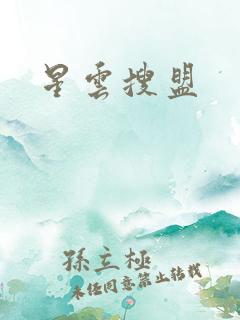 星雲搜盟
孫立極
未经同意禁止转载